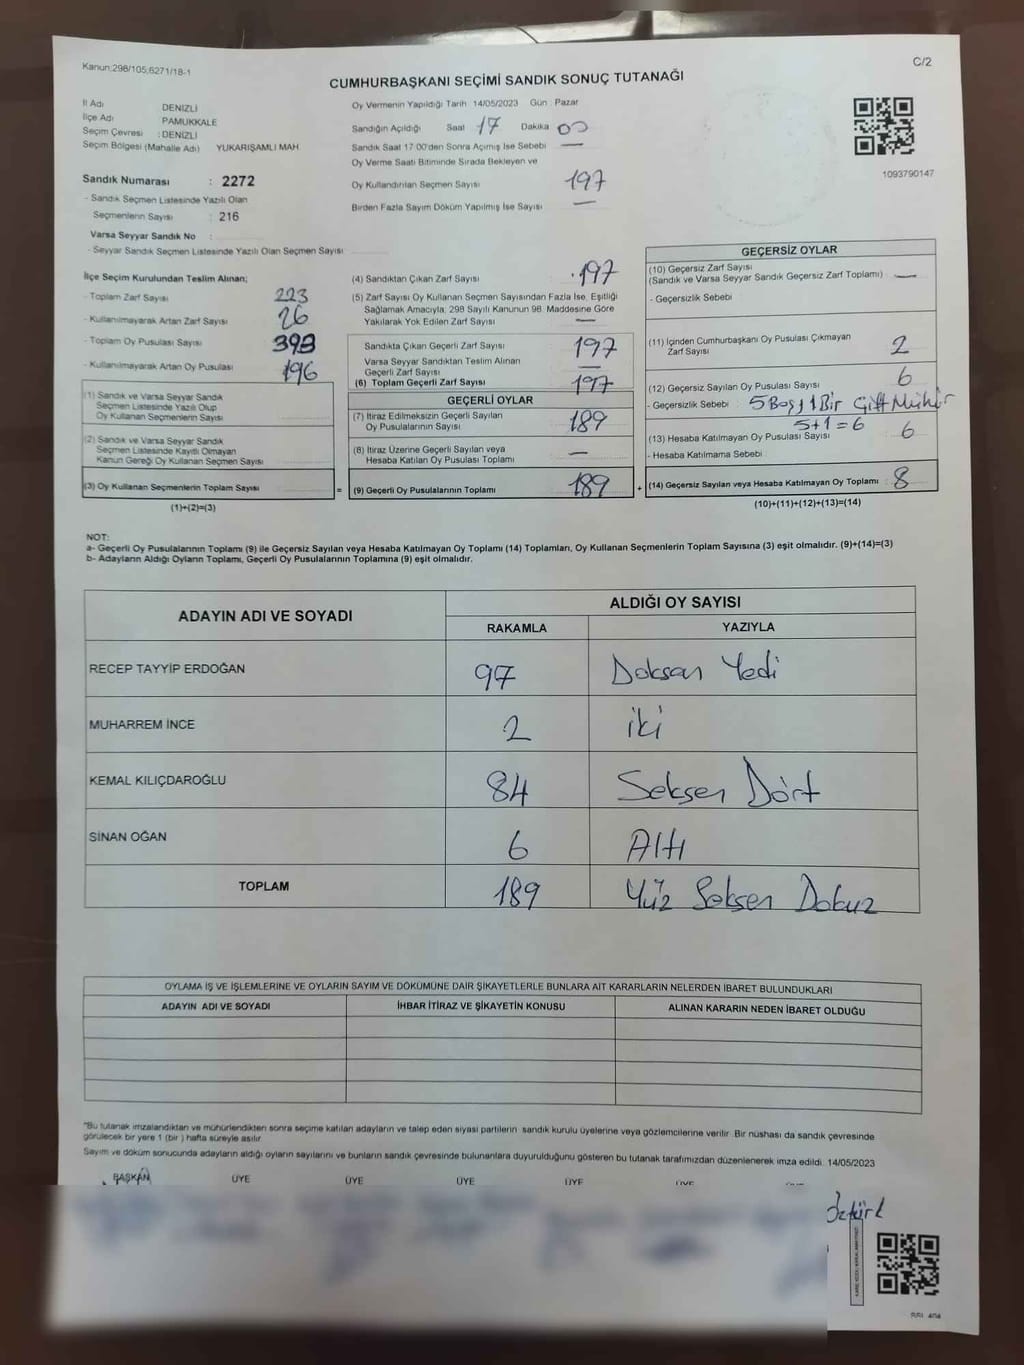 Kanun:298/105;6271/18-1
C/2
CUMHURBAŞKANI SEÇİMİ SANDIK SONUÇ TUTANAĞI
İl Adı DENİZLİ
İlçe Adı PAMUKKALE
Seçim Çevresi : DENİZLİ
Seçim Bölgesi (Mahalle Adı) YUKARIŞAMLI MAH
Sandık Numarası : 2272
- Sandık Seçmen Listesinde Yazılı Olan
Seçmenlerin Sayısı : 216
Varsa Seyyar Sandık No :
- Seyyar Sandık Seçmen Listesinde Yazılı Olan Seçmen Sayısı
Oy Vermenin Yapıldığı Tarih 14/05/2023 Gün Pazar
Sandığın Açıldığı Saat 17 Dakika 00
Sandık Saat 17:00'den Sonra Açımış İse Sebebi —
Oy Verme Saati Bitiminde Sırada Bekleyen ve
Oy Kullandırılan Seçmen Sayısı 197
Birden Fazla Sayım Döküm Yapılmış İse Sayısı —
1093790147
İlçe Seçim Kurulundan Teslim Alınan;
- Toplam Zarf Sayısı 223
- Kullanılmayarak Artan Zarf Sayısı 26
- Toplam Oy Pusulası Sayısı 393
- Kullanılmayarak Artan Oy Pusulası 196
(1) Sandık ve Varsa Seyyar Sandık
Seçmen Listesinde Yazılı Olup
Oy Kullanan Seçmenlerin Sayısı
(2) Sandık ve Varsa Seyyar Sandık
Seçmen Listesinde Kayıtlı Olmayan
Kanun Gereği Oy Kullanan Seçmen Sayısı
(3) Oy Kullanan Seçmenlerin Toplam Sayısı =
(1)+(2)=(3)
(4) Sandıktan Çıkan Zarf Sayısı 197
(5) Zarf Sayısı Oy Kullanan Seçmen Sayısından Fazla İse, Eşitliği
Sağlamak Amacıyla; 298 Sayılı Kanunun 98. Maddesine Göre
Yakılarak Yok Edilen Zarf Sayısı —
Sandıkta Çıkan Geçerli Zarf Sayısı 197
Varsa Seyyar Sandıktan Teslim Alınan
Geçerli Zarf Sayısı —
(6) Toplam Geçerli Zarf Sayısı 197
GEÇERLİ OYLAR
(7) İtiraz Edilmeksizin Geçerli Sayılan
Oy Pusulalarının Sayısı 189
(8) İtiraz Üzerine Geçerli Sayılan veya
Hesaba Katılan Oy Pusulası Toplamı —
(9) Geçerli Oy Pusulalarının Toplamı 189 +
GEÇERSİZ OYLAR
(10) Geçersiz Zarf Sayısı
(Sandık ve Varsa Seyyar Sandık Geçersiz Zarf Toplamı) —
- Geçersizlik Sebebi
(11) İçinden Cumhurbaşkanı Oy Pusulası Çıkmayan
Zarf Sayısı 2
(12) Geçersiz Sayılan Oy Pusulası Sayısı 6
- Geçersizlik Sebebi : 5 Boş, 1 Bir Çift Mühür
5+1=6
(13) Hesaba Katılmayan Oy Pusulası Sayısı 6
- Hesaba Katılmama Sebebi
(14) Geçersiz Sayılan veya Hesaba Katılmayan Oy Toplamı : 8
(10)+(11)+(12)+(13)=(14)
NOT:
a- Geçerli Oy Pusulalarının Toplamı (9) ile Geçersiz Sayılan veya Hesaba Katılmayan Oy Toplamı (14) Toplamları, Oy Kullanan Seçmenlerin Toplam Sayısına (3) eşit olmalıdır. (9)+(14)=(3)
b- Adayların Aldığı Oyların Toplamı, Geçerli Oy Pusulalarının Toplamına (9) eşit olmalıdır.
ADAYIN ADI VE SOYADI
ALDIĞI OY SAYISI
RAKAMLA YAZIYLA
RECEP TAYYİP ERDOĞAN 97 Doksan Yedi
MUHARREM İNCE 2 iki
KEMAL KILIÇDAROĞLU 84 Seksen Dört
SİNAN OĞAN 6 Altı
TOPLAM 189 Yüz Seksen Dokuz
OYLAMA İŞ VE İŞLEMLERİNE VE OYLARIN SAYIM VE DÖKÜMÜNE DAİR ŞİKAYETLERLE BUNLARA AİT KARARLARIN NELERDEN İBARET BULUNDUKLARI
ADAYIN ADI VE SOYADI İHBAR İTİRAZ VE ŞİKAYETİN KONUSU ALINAN KARARIN NEDEN İBARET OLDUĞU
"Bu tutanak imzalandıktan ve mühürlendikten sonra seçime katılan adayların ve talep eden siyasi partilerin sandık kurulu üyelerine veya gözlemcilerine verilir. Bir nüshası da sandık çevresinde
görülecek bir yere 1 (bir ) hafta süreyle asılır.
Sayım ve döküm sonucunda adayların aldığı oyların sayılarını ve bunların sandık çevresinde bulunanlara duyurulduğunu gösteren bu tutanak tarafımızdan düzenlenerek imza edildi. 14/05/2023
BAŞKAN ÜYE ÜYE ÜYE ÜYE ÜYE
Öztürk